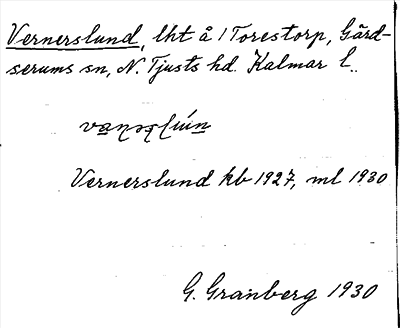 Vernerslund, lht å 1 Torestorp, Gärd-
serums sn, N. Tjusts hd. Kalmar l..
Vernerslund kb 1927, ml 1930
G. Granberg 1930